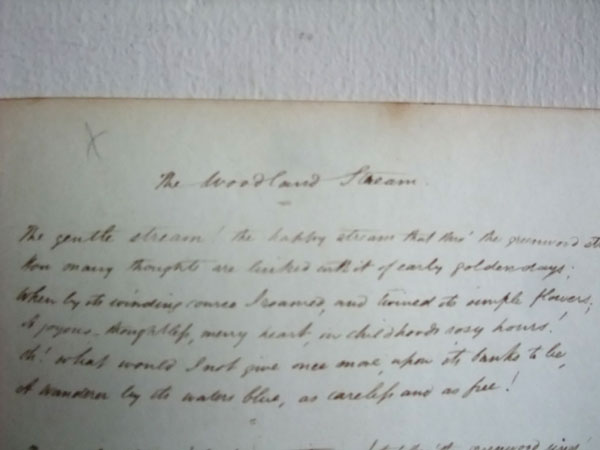 The Woodland Stream.
The gentle stream! the happy stream that thro' the greenwood
How many thoughts are linked with it of early golden days;
When by its winding course I roamed, and twined its simple flowers;
A joyous, thoughtless, merry heart, in childhoods rosy hours!
Oh! what would I not give once more, upon its banks to lie,
A wanderer by its waters blue, as careless and as free!
greenwood